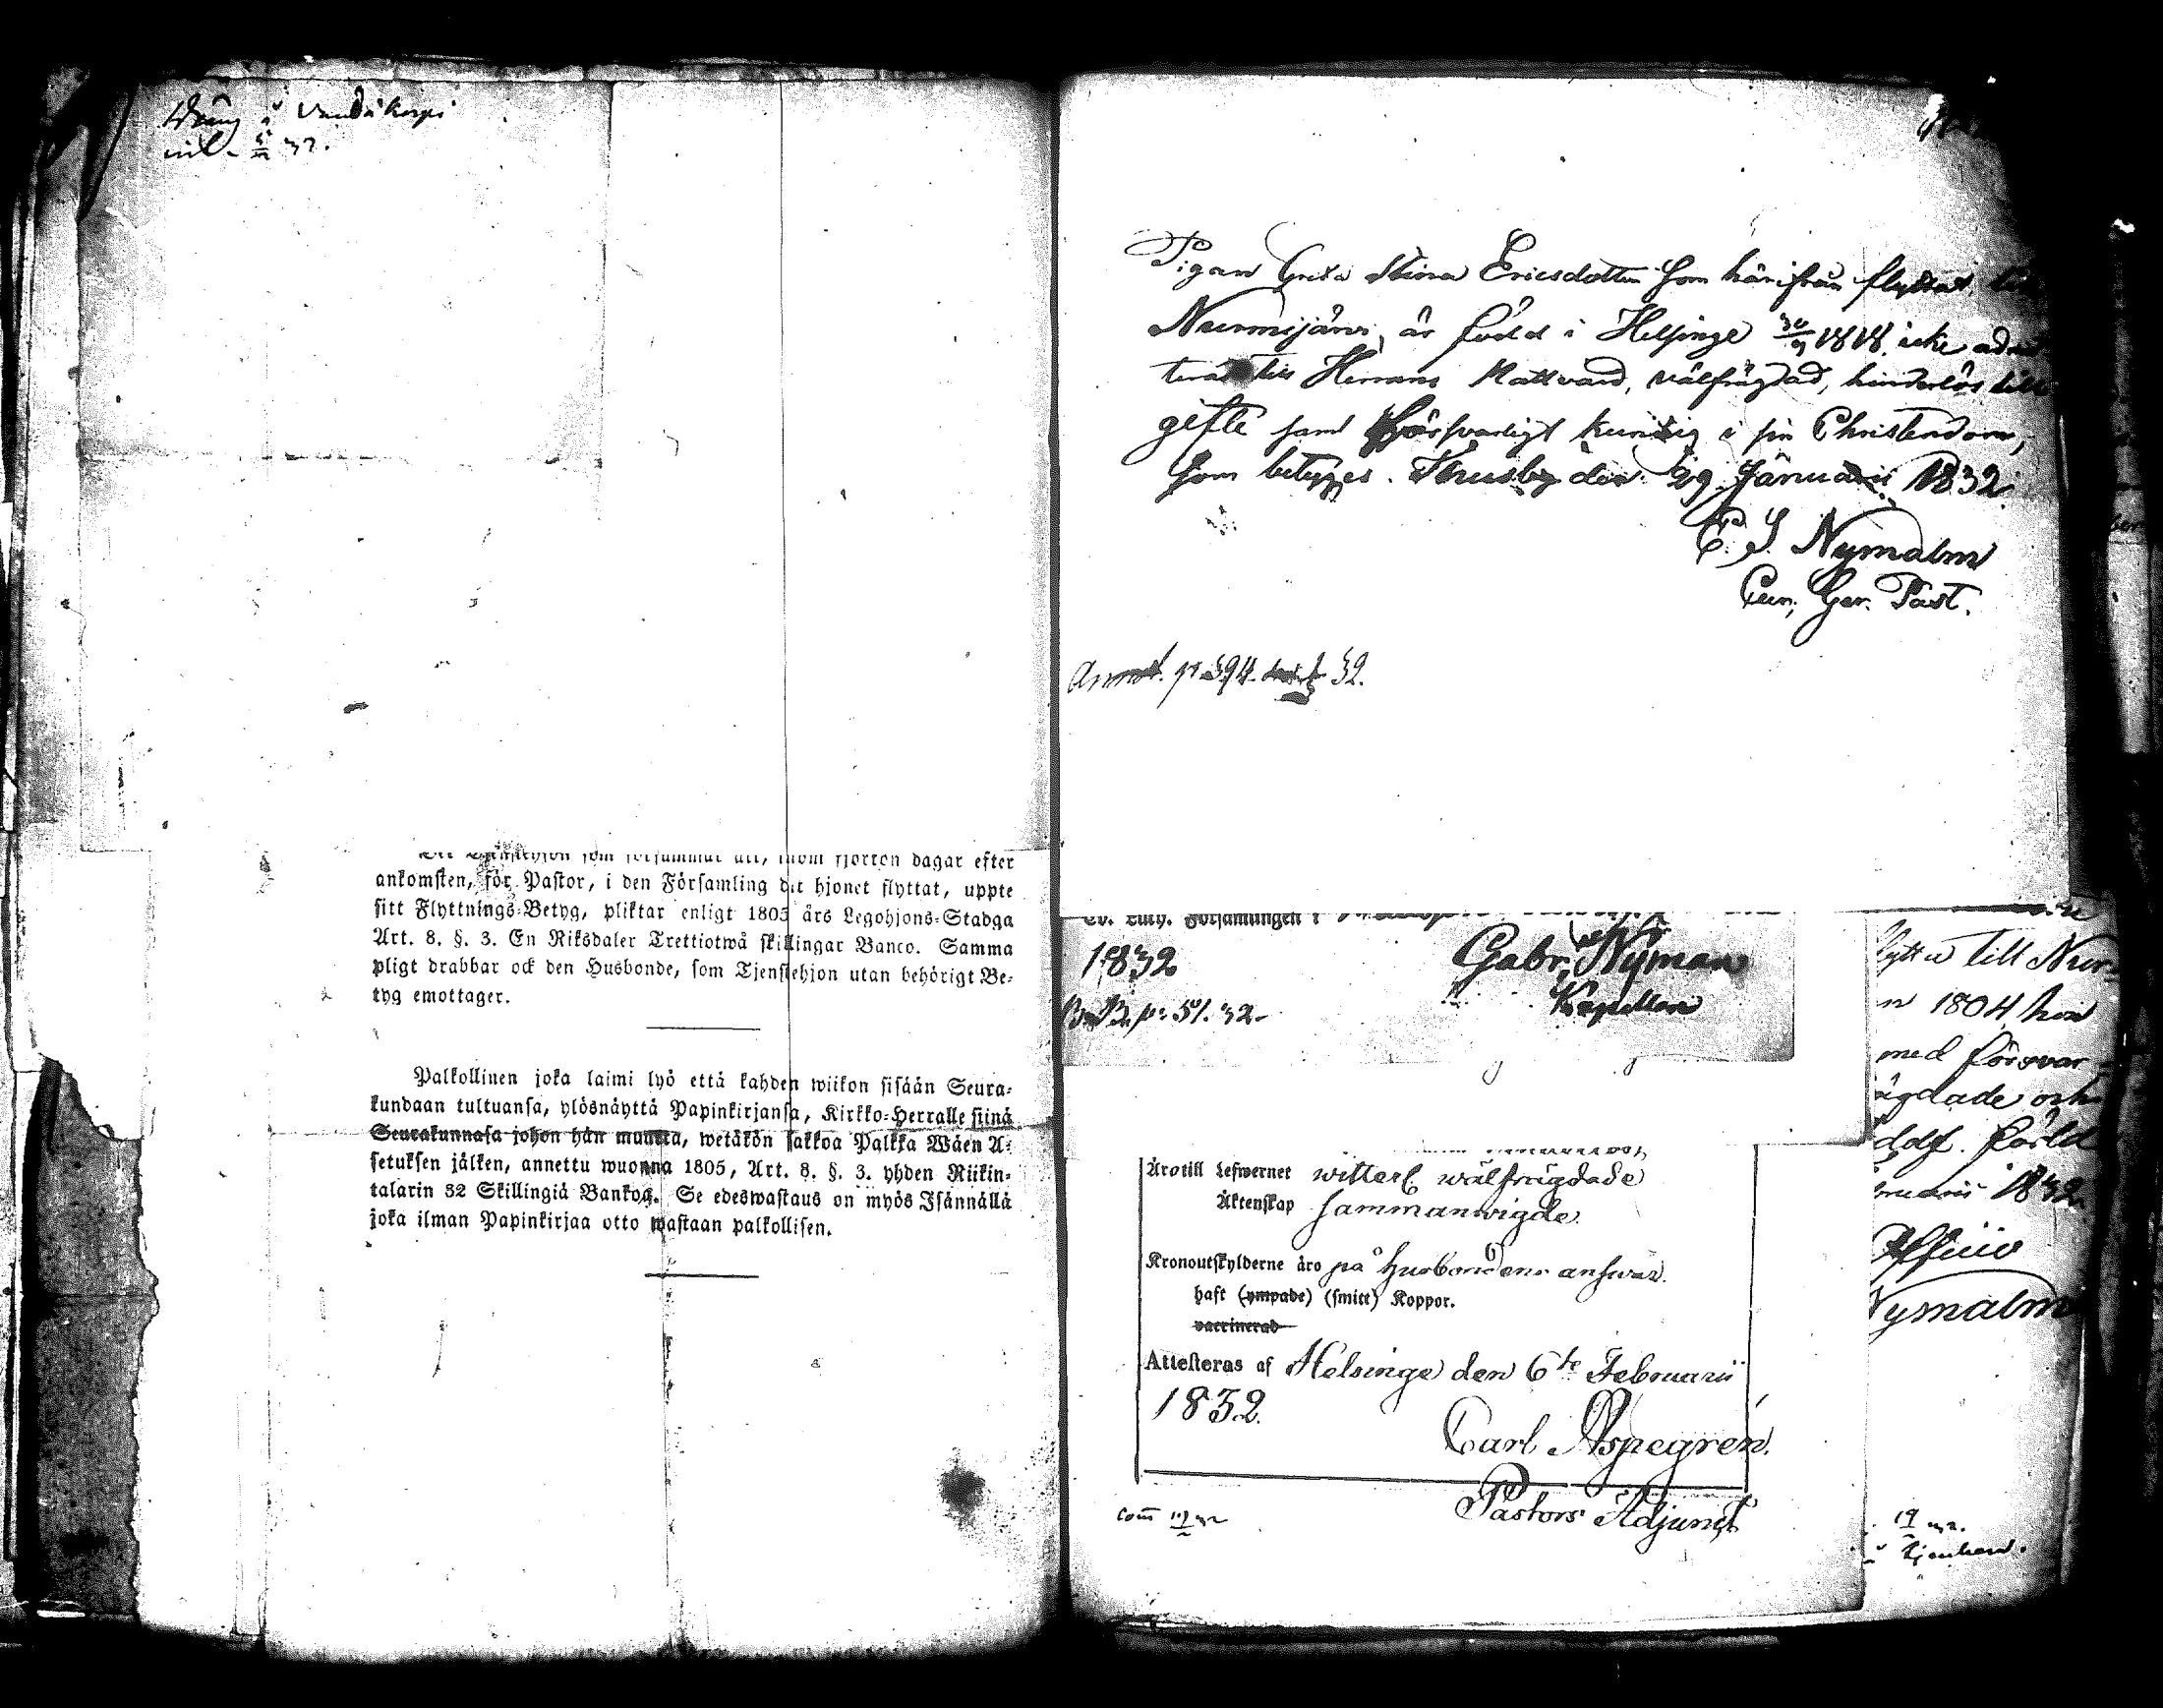 Dräng i
Ett Tjenstehjon som försummat att, inom fjorton dagar efter
ankomsten, för Pastor, i den Församling dit hjonet flyttat, uppte
sitt Flyttnings-Betyg, pliktar enligt 1805 års Legohjons-Stadga
Art. 8. §. 3. En Riksdaler Trettiotwå skillingar Banco. Samma
pligt drabbar ock den Husbonde, som Tjenstehjon utan behörigt Be-
tyg emottager.
Palkollinen joka laimi lyö että kahden wiikon sisään Seura-
kundaan tultuansa, ylösnäyttä Papinkirjansa, Kirkko-Herralle siinä
Seurakunnasa johon hän muutta, wetäkön sakkoa Palkka Wäen A-
setuksen jälken, annettu wuonna 1805, Art. 8. §. 3. yhden Riikin-
talarin 32 Skillingiä Bankog. Se edeswastaus on myös Isännällä
joka ilman Papinkirjaa otto wastaan palkollisen.
Pigan Greta Stina Ericsdotter som härifrån flyttat till
Nurmijärvi, är född i Helsinge 30/9 1818. icke admit-
terad till Herrans Nattvard, välfrägdad, hinderlös till
gifte samt försvarligt kunnig i sin Christendom,
som betygas. Thusby den 29 Januarii 1832
C. J. Nymalm
Past.
Annot. p 394. 32.
Ev. Luth. Församlingen i
1832
Gabr. Nyman
Kapellan
p. 51. 32.
flytta till Nur-
n 1804 hon
med försvar-
ägdade och
ddf. förld
ruarii 1832.
Nymalm
Äro till Lefwernet witterl. wälfrägdade
Äktenskap sammanwigde.
Kronoutskylderne äro på husbondens answar.
haft (ympade) (smitt) Koppor.
vaccinerad
Attesteras af Helsinge den 6te Februarii
1832.
Carl Aspegren.
Pastors Adjunct